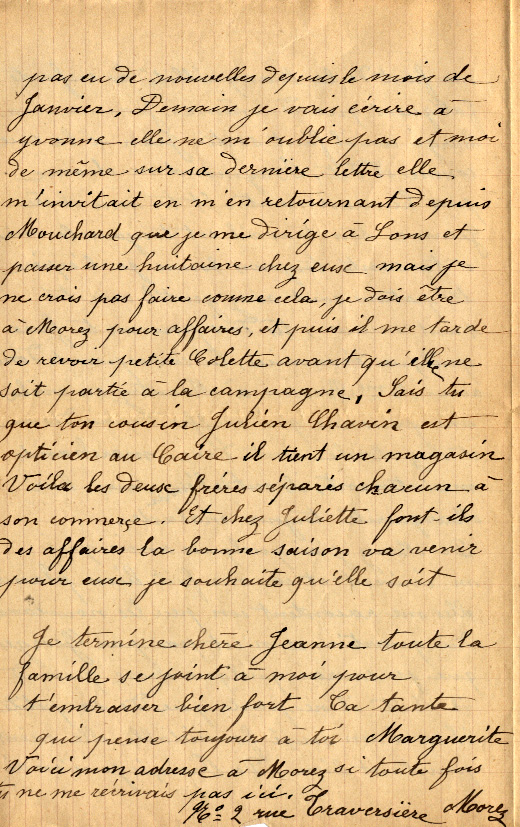 pas eu de nouvelles depuis le mois de
Janvier. Demain je vais écrire à
yvonne elle ne m'oublie pas et moi
de même sur sa dernière lettre elle
m'invitait en m'en retournant depuis
Mouchard que je me dirige à Lons et
passer une huitaine chez eux mais je
ne crois pas faire comme cela, je dois être
à Morez pour affaires, et puis il me tarde
de revoir petite Colette avant qu'elle ne
soit partie à la campagne, Sais tu
que ton cousin Julien Chavin est
opticien au Caire il tient un magasin
Voila les deux fréres séparés chacun à
son commerçe. Et chez Juliette font-ils
des affaires la bonne saison va venir
pour eux je souhaite qu'elle soit
Je termine chère Jeanne toute la
famille se joint à moi pour
t'embrasser bien fort Ta tante
qui pense toujours à toi Marguerite
Voici mon adresse à Morez si toute fois
tu ne me récrivais pas ici.
No 2 rue Traversière Morez